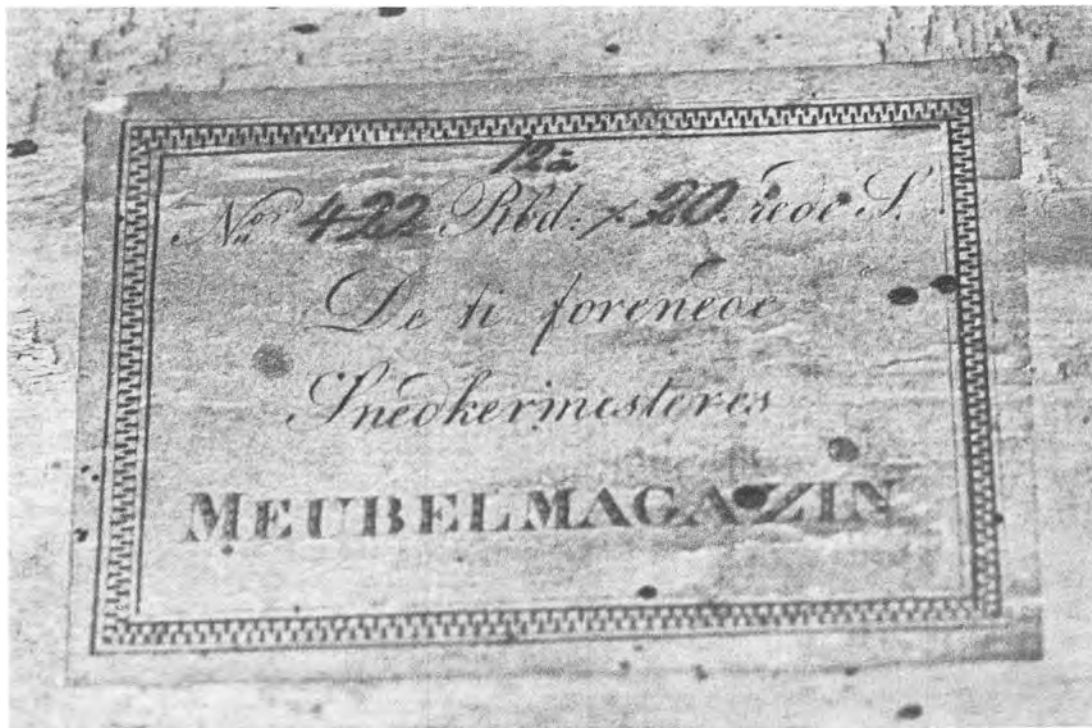 12 à
No 422 Rbd: 20. rede S.
De ti forenede
Snedkermesteres
MEUBELMAGAZIN